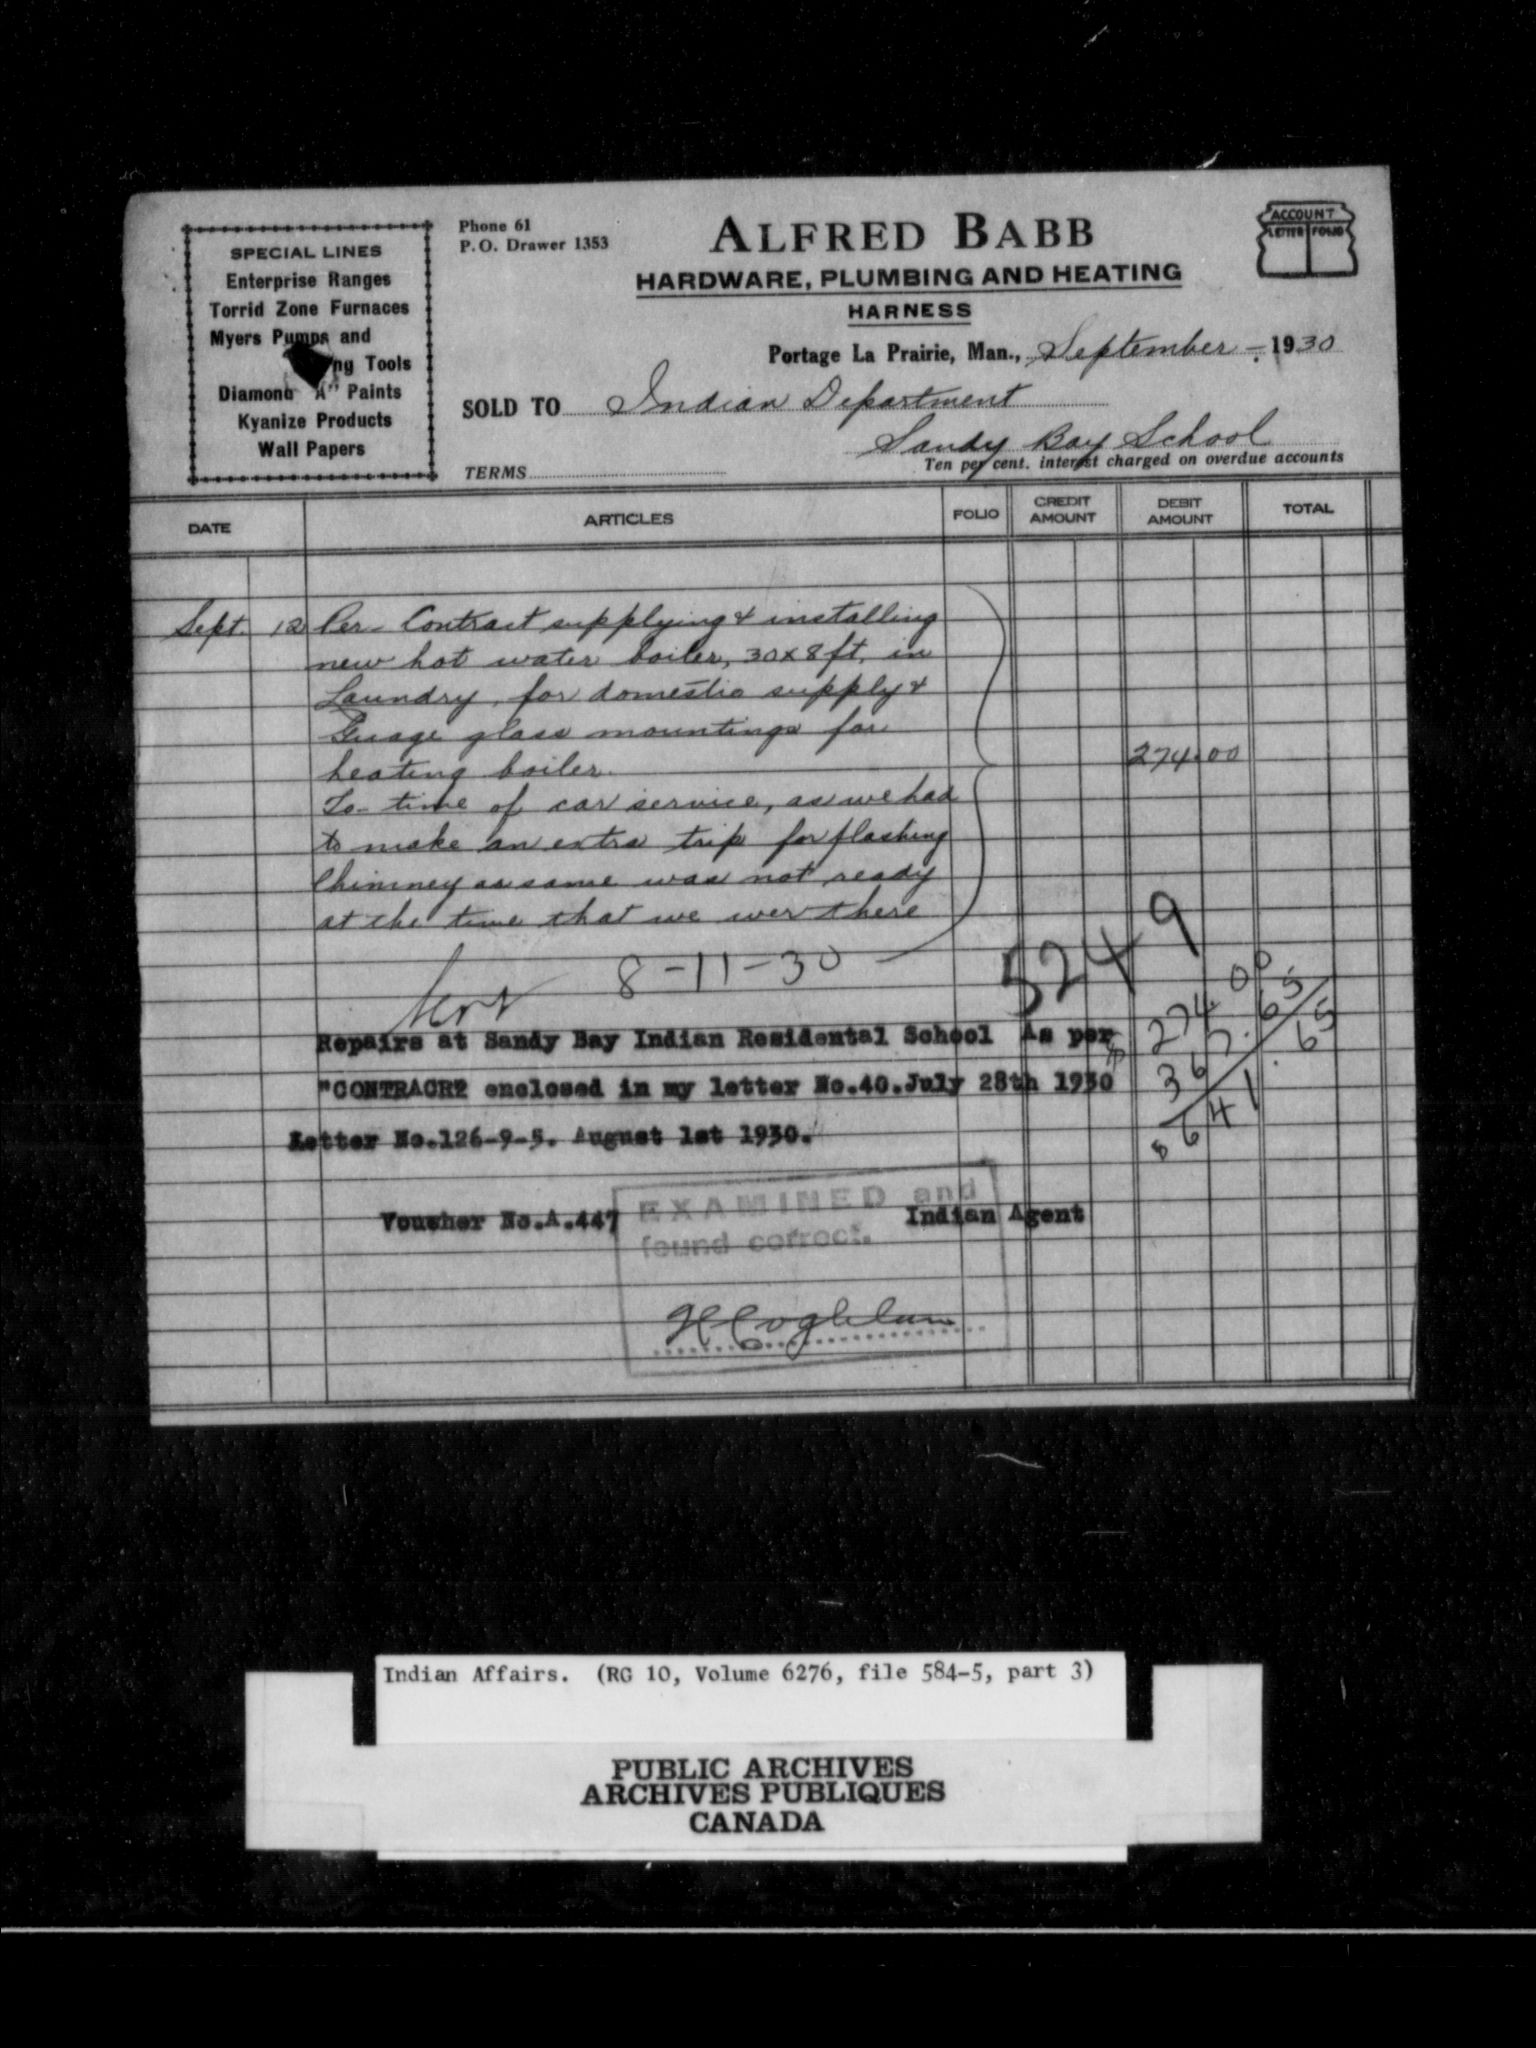 SPECIAL LINES
Enterprise Ranges
Torrid Zone Furnaces
Myers Pumps and
ng Tools
Diamond "A" Paints
Kyanize Products
Wall Papers
Phone 61
P.O. Drawer 1353
ALFRED BABB
HARDWARE, PLUMBING AND HEATING
HARNESS
ACCOUNT
LETTER FOLIO
Portage La Prairie, Man., September - 1930
SOLD TO Indian Department
Sandy Bay School
TERMS
Ten per cent. interest charged on overdue accounts
DATE ARTICLES FOLIO CREDIT AMOUNT DEBIT AMOUNT TOTAL
Sept. 12 Per - Contract supplying & installing
new hot water boiler, 30x8 ft. in
Laundry, for domestic supply &
Guage glass mountings for
heating boiler. 274.00
To - time of car service, as we had
to make an extra trip for flashing
Chimney as same was not ready
at the time that we wer there
8-11-30
5249
274.00
367.65
641.65
Repairs at Sandy Bay Indian Residental School As per
"CONTRACR? enclosed in my letter No.40.July 28th 1930
Letter No.126-9-5. August 1st 1930.
Voucher No.A.447
Indian Agent
EXAMINED and
found correct.
Indian Affairs. (RG 10, Volume 6276, file 584-5, part 3)
PUBLIC ARCHIVES
ARCHIVES PUBLIQUES
CANADA